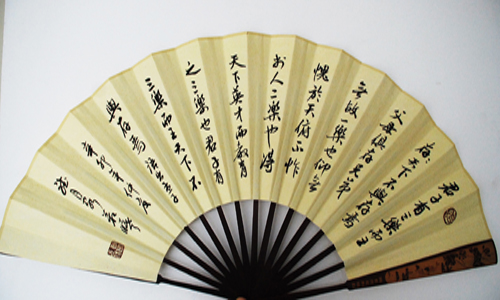 君子有三樂而王
天下不與存焉
父母俱存兄弟
無故一樂也仰不
愧於天俯不怍
於人二樂也得
天下英才而教育
之三樂也君子有
三樂而王天下不
與存焉 語出孟子
辛卯年仲夏